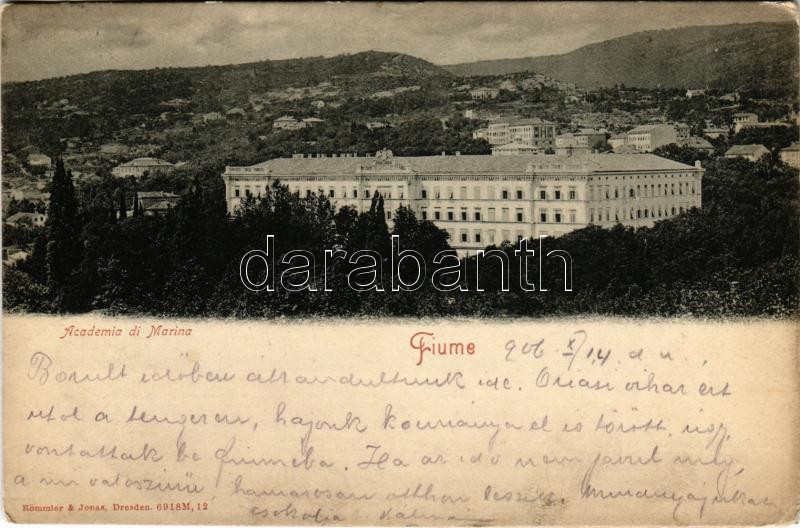 darabanth
Academia di Marina
Fiume 906 X/14 d u.
Borult időben átrandultunk ide. Óriási vihar ért
utol a tengeren, hajónk kormánya el is törött, úgy
vontattak be Fiumeba. Ha az idő nem javul meg,
a mi valószinü, hamarosan otthon leszek. Mindnyájukat
csókolja Kálmán
Römmler & Jonas, Dresden. 6918M, 12